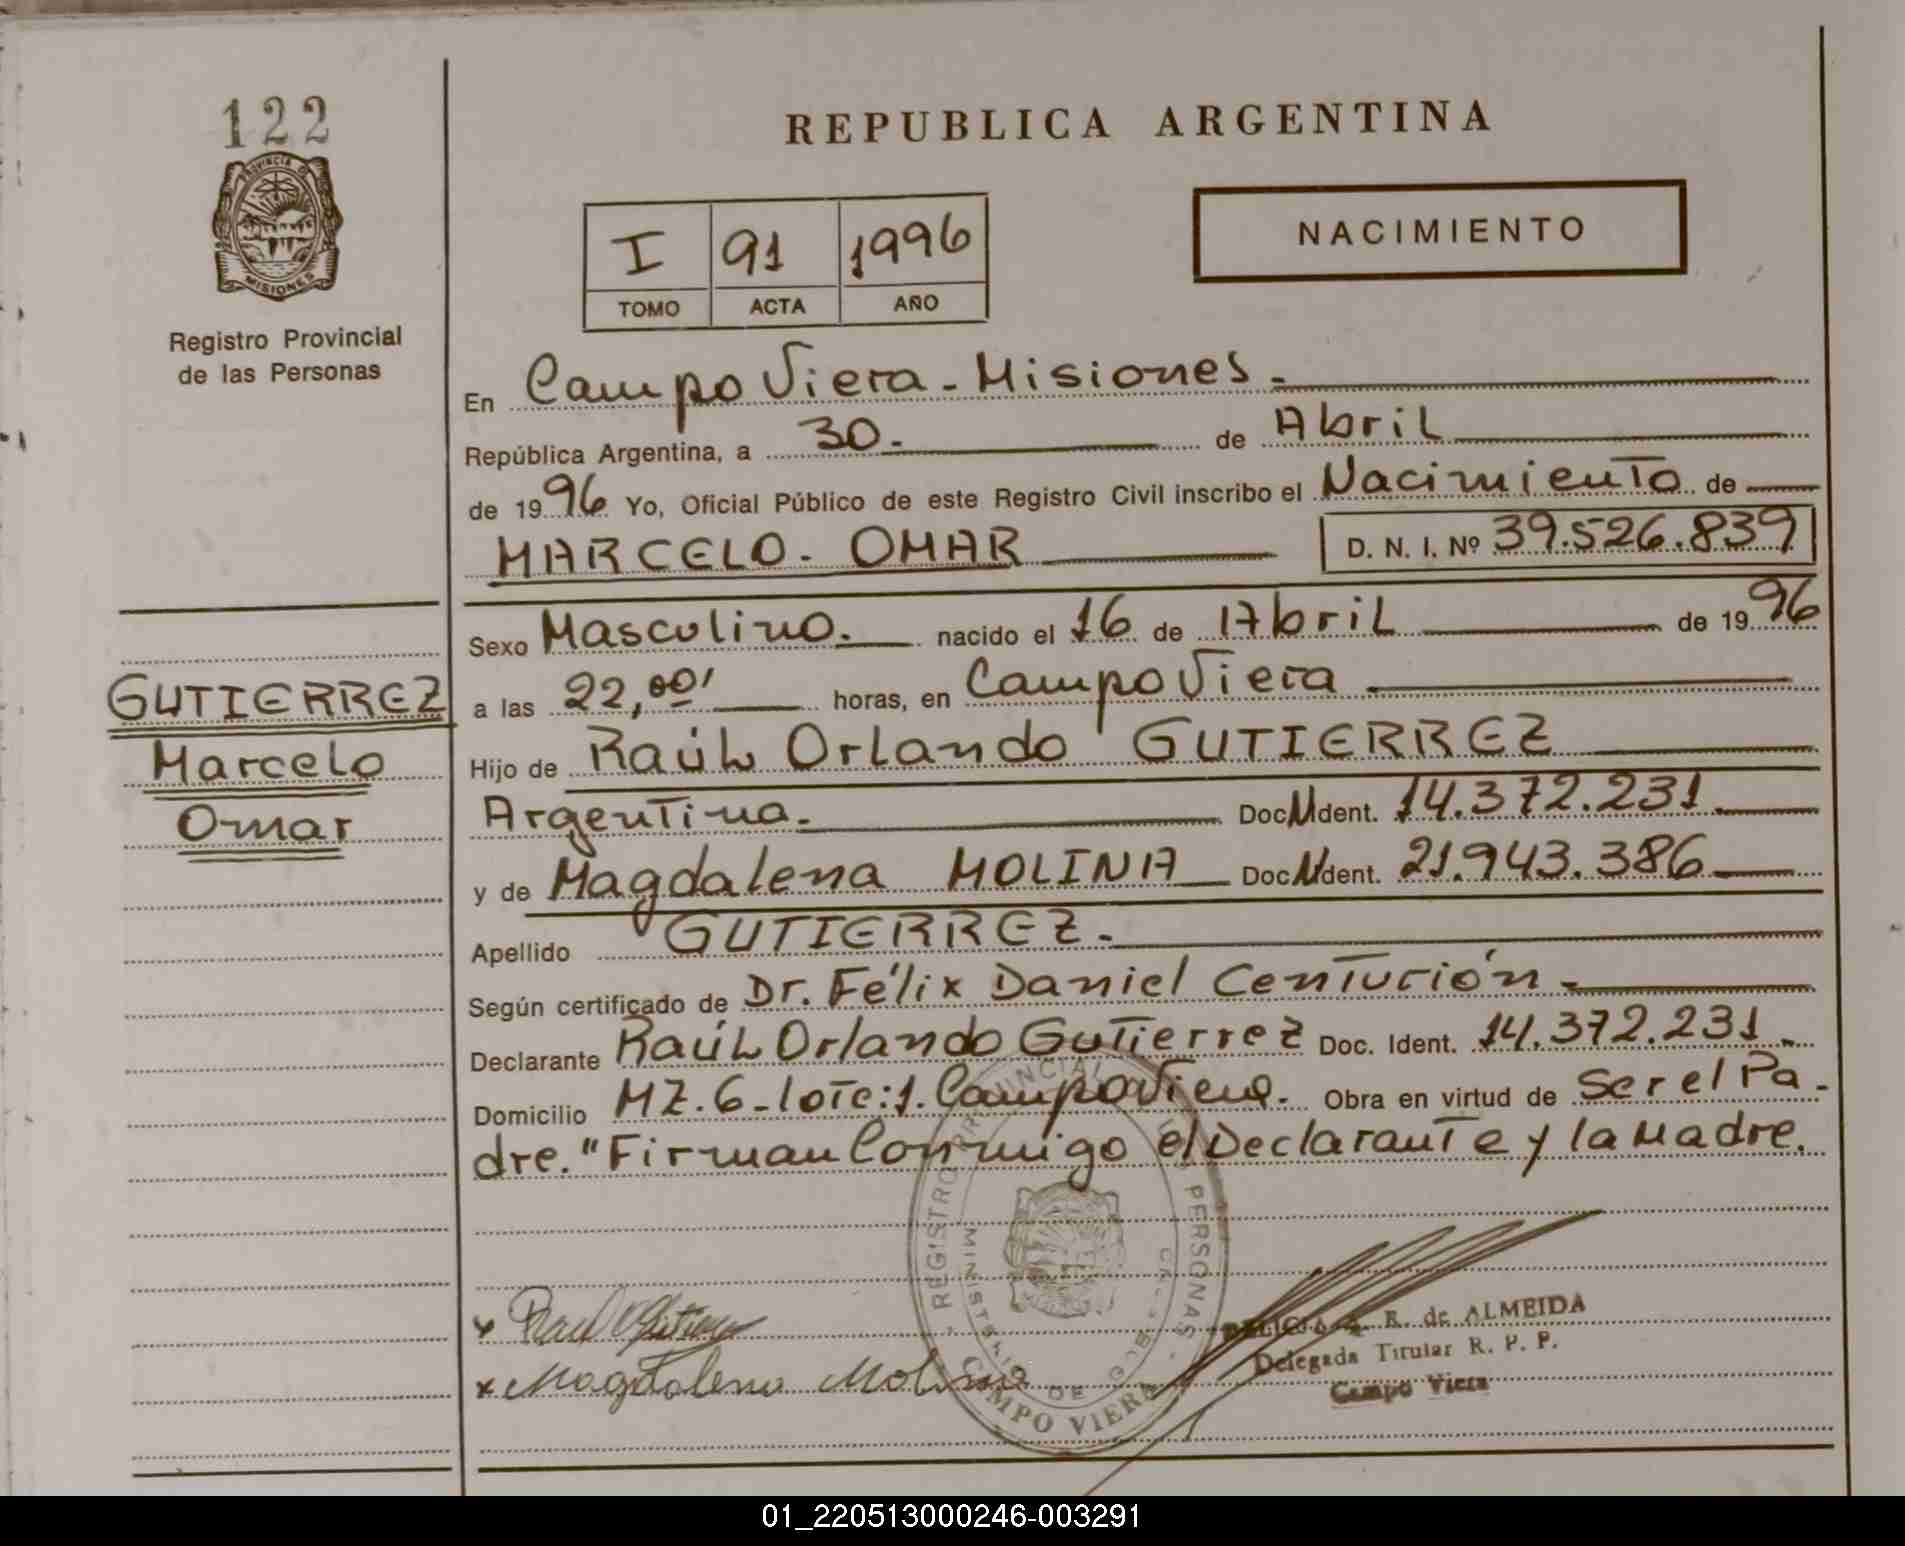 122
PROVINCIA DE
MISIONES
Registro Provincial
de las Personas
REPUBLICA ARGENTINA
I 91 1996
TOMO ACTA AÑO
NACIMIENTO
En Campo Viera - Misiones.
República Argentina, a 30. de Abril
de 1996 Yo, Oficial Público de este Registro Civil inscribo el Nacimiento de
MARCELO. OMAR D. N. I. Nº 39.526.839
Sexo Masculino. nacido el 16 de Abril de 1996
a las 22,00' horas, en Campo Viera
Hijo de Raúl Orlando GUTIERREZ
Argentina. Doc N Ident. 14.372.231.
y de Magdalena MOLINA Doc N Ident. 21.943.386
Apellido GUTIERREZ.
Según certificado de Dr. Félix Daniel Centurión.
Declarante Raúl Orlando Gutierrez Doc. Ident. 14.372.231.
Domicilio MZ. 6 - lote: 1. Campo Viera. Obra en virtud de Ser el Pa-
dre. "Firman Conmigo el Declarante y la Madre.
GUTIERREZ
Marcelo
Omar
REGISTRO PROVINCIAL PERSONAS
MINISTERIO DE
CAMPO VIERA
x Raul O Gutierrez
x Magdalena Molina
R. de ALMEIDA
Delegada Titular R. P. P.
Campo Viera
01_220513000246-003291